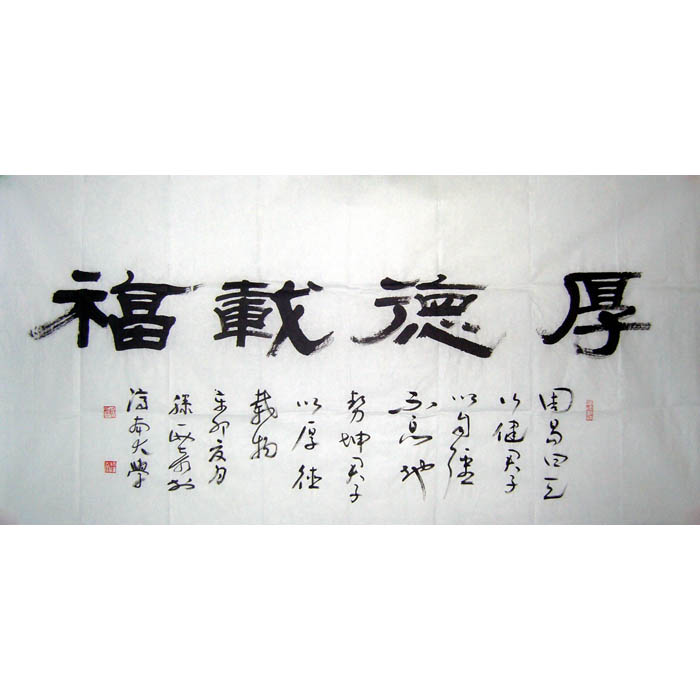 厚德載福
周易曰天
行健君子
以自彊
不息地
勢坤君子
以厚德
載物
辛卯夏月
濟南大學